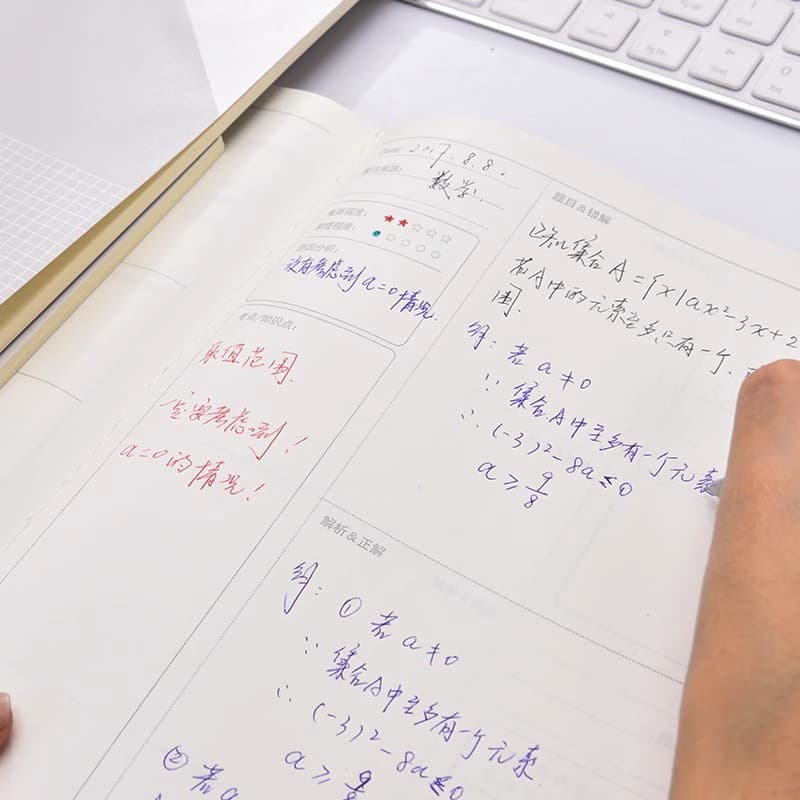 Date: 2017.8.8.
数学
重要程度: ★★☆☆☆
没有考虑到a=0情况.
考点/知识点:
取值范围.
一定要考虑到!
a=0的情况!
题目&错解
已知集合A={x|ax²-3x+2
若A中的元素至多只有一个,
围.
解: 若a≠0
∵ 集合A中至多有一个元素
∴ (-3)²-8a≤0
a≥9/8
解析&正解
解: ① 若a≠0
∵ 集合A中至多有一个元素
∴ (-3)²-8a≤0
a≥9/8
② 若a